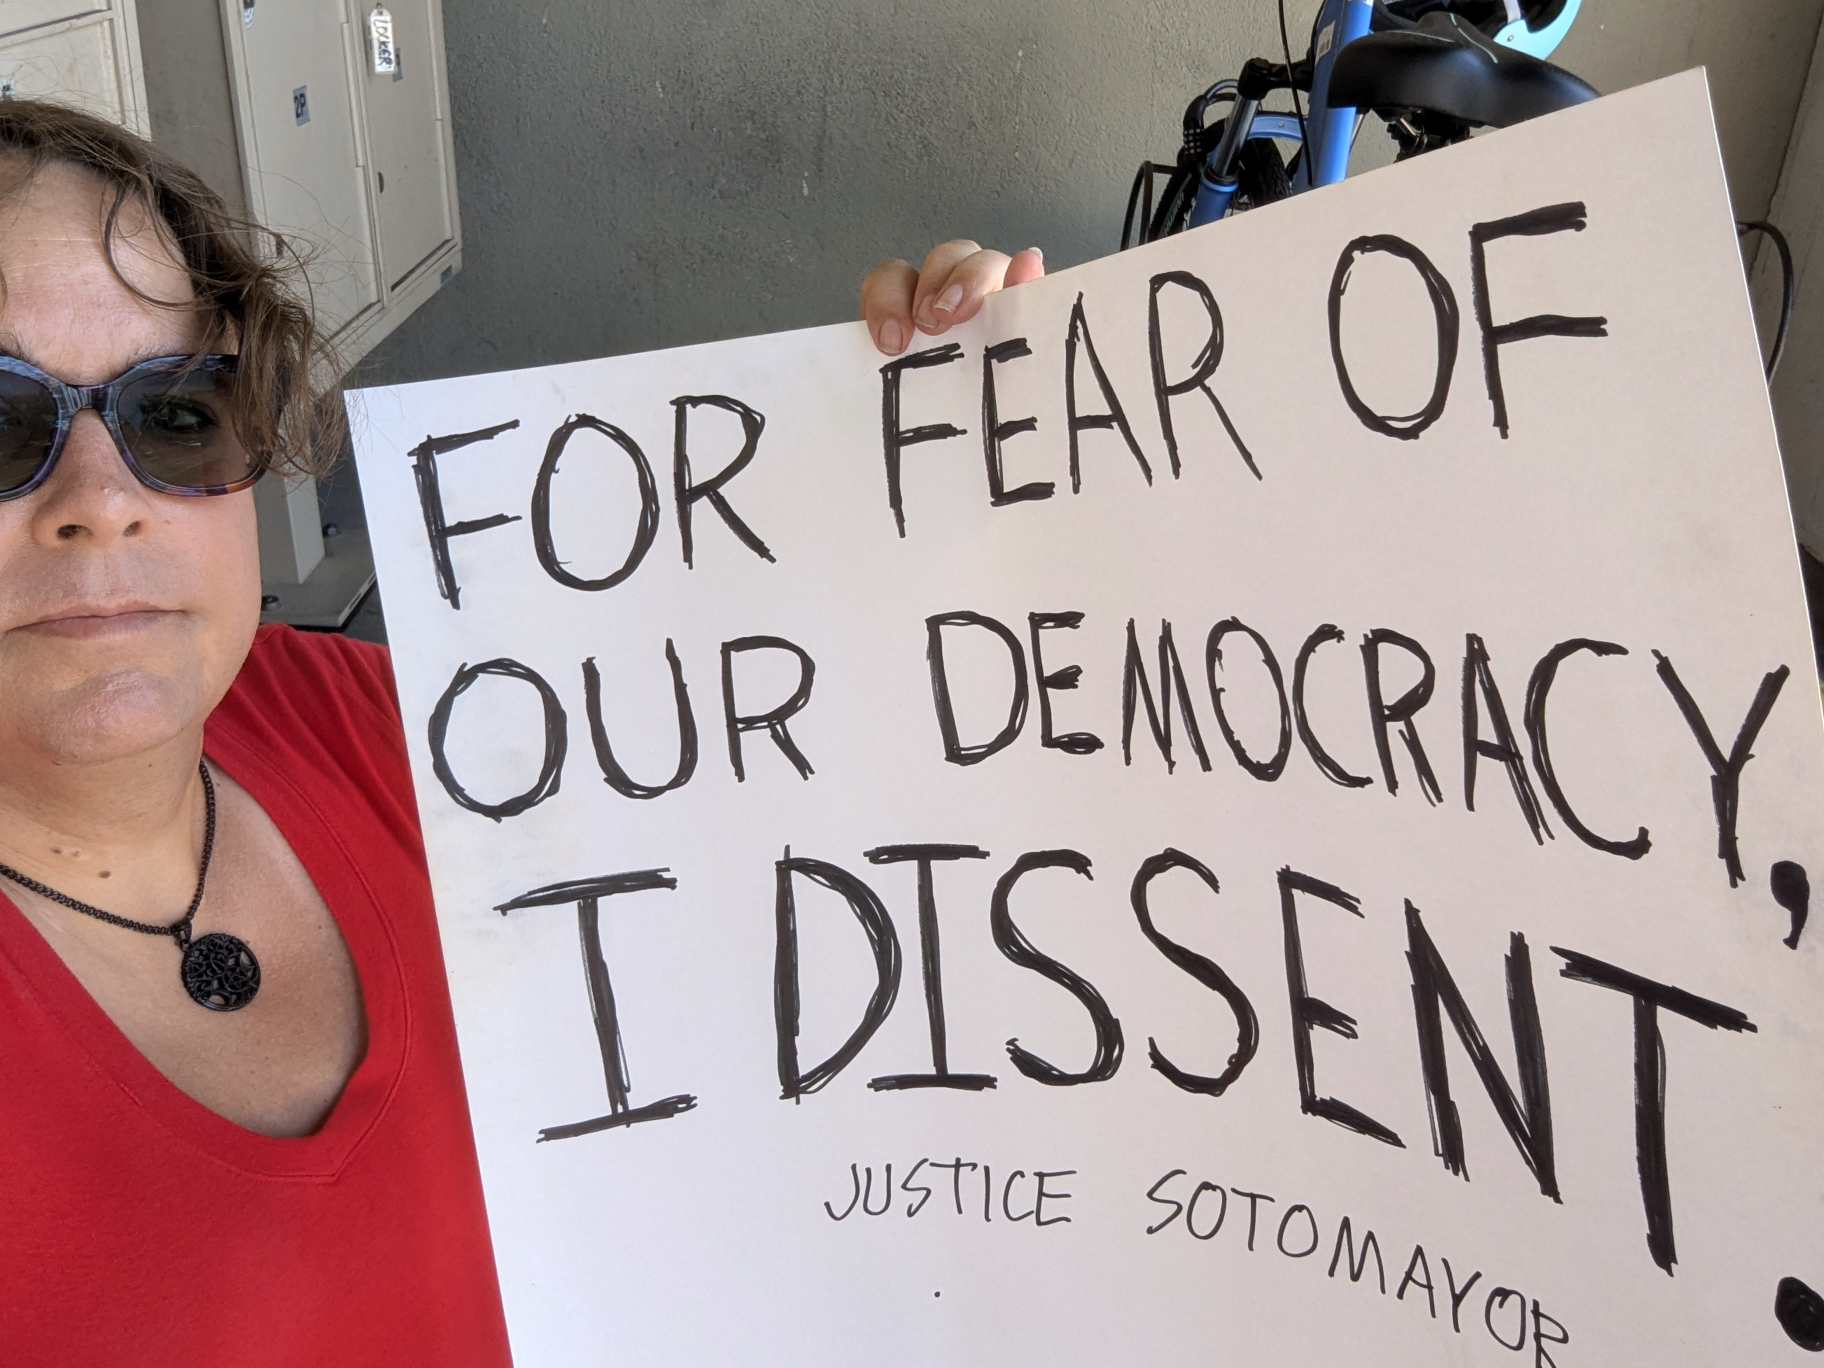 LOCKER
2P
FOR FEAR OF
OUR DEMOCRACY,
I DISSENT.
JUSTICE SOTOMAYOR